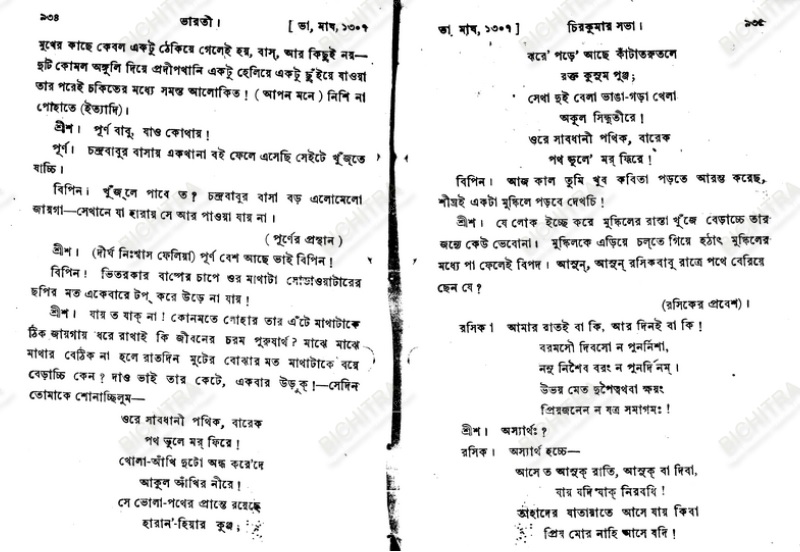 ৯৩৪
ভারতী।
[ ভা, মাঘ, ১৩০৭
মুখের কাছে কেবল একটু ঠেকিয়ে গেলেই হয়, বাস্, আর কিছুই নয়—
দুটি কোমল অঙ্গুলি দিয়ে প্রদীপখানি একটু হেলিয়ে একটু ছুঁইয়ে যাওয়া
তার পরেই চকিতের মধ্যে সমস্ত আলোকিত! ( আপন মনে ) নিশি না
পোহাতে (ইত্যাদি)।
শ্রীশ। পূর্ণ বাবু, যাও কোথায়!
পূর্ণ। চন্দ্রবাবুর বাসায় একখানা বই ফেলে এসেছি সেইটে খুঁজ্‌তে
যাচ্চি।
বিপিন। খুঁজ্‌লে পাবে ত? চন্দ্রবাবুর বাসা বড় এলোমেলো
জায়গা—সেখানে যা হারায় সে আর পাওয়া যায় না।
( পূর্ণের প্রস্থান )
শ্রীশ। (দীর্ঘ নিঃশ্বাস ফেলিয়া) পূর্ণ বেশ আছে ভাই বিপিন!
বিপিন। ভিতরকার বাষ্পের চাপে ওর মাথাটা সোডাওয়াটারের
ছিপির মত একেবারে টপ্ করে উড়ে না যায়!
শ্রীশ। যায় ত যাক্ না! কোনমতে লোহার তার এঁটে মাথাটাকে
ঠিক জায়গায় ধরে রাখাই কি জীবনের চরম পুরুষার্থ? মাঝে মাঝে
মাথার বেঠিক না হলে রাতদিন মুটের বোঝার মত মাথাটাকে বয়ে
বেড়াচ্চি কেন? দাও ভাই তার কেটে, একবার উড়ুক্!—সেদিন
তোমাকে শোনাচ্ছিলুম—
ওরে সাবধানী পথিক, বারেক
পথ ভুলে মর্ ফিরে!
খোলা-আঁখি দুটো অন্ধ করে' দে
আকুল আঁখির নীরে!
সে ভোলা-পথের প্রান্তে রয়েছে
হারান'-হিয়ার কুঞ্জ;
ভা, মাঘ, ১৩০৭ ]
চিরকুমার সভা।
৯৩৫
ঝরে' পড়ে' আছে কাঁটাতরুতলে
রক্ত কুসুম পুঞ্জ;
সেথা দুই বেলা ভাঙা-গড়া খেলা
অকূল সিন্ধুতীরে!
ওরে সাবধানী পথিক, বারেক
পথ ভুলে' মর্ ফিরে!
বিপিন। আজ কাল তুমি খুব কবিতা পড়তে আরম্ভ করেছ,
শীঘ্রই একটা মুস্কিলে পড়বে দেখ্‌চি!
শ্রীশ। যে লোক ইচ্ছে করে মুস্কিলের রাস্তা খুঁজে বেড়াচ্চে তার
জন্যে কেউ ভেবোনা। মুস্কিলকে এড়িয়ে চল্‌তে গিয়ে হঠাৎ মুস্কিলের
মধ্যে পা ফেল্‌লেই বিপদ। আসুন্, আসুন্ রসিকবাবু রাত্রে পথে বেরিয়ে
ছেন যে?
(রসিকের প্রবেশ)।
রসিক। আমার রাতই বা কি, আর দিনই বা কি!
বরমসৌ দিবসো ন পুনর্নিশা,
ননু নিশৈব বরং ন পুনর্দিনম্।
উভয় মেত দুপৈত্বথবা ক্ষয়ং
প্রিয়জনেন ন যত্র সমাগমঃ!
শ্রীশ। অস্যার্থঃ?
রসিক। অস্যার্থ হচ্চে—
আসে ত আসুক্ রাতি, আসুক্ বা দিবা,
যায় যদি যাক্ নিরবধি!
তাহাদের যাতায়াতে আসে যায় কিবা
প্রিয় মোর নাহি আসে যদি!
BICHITRA